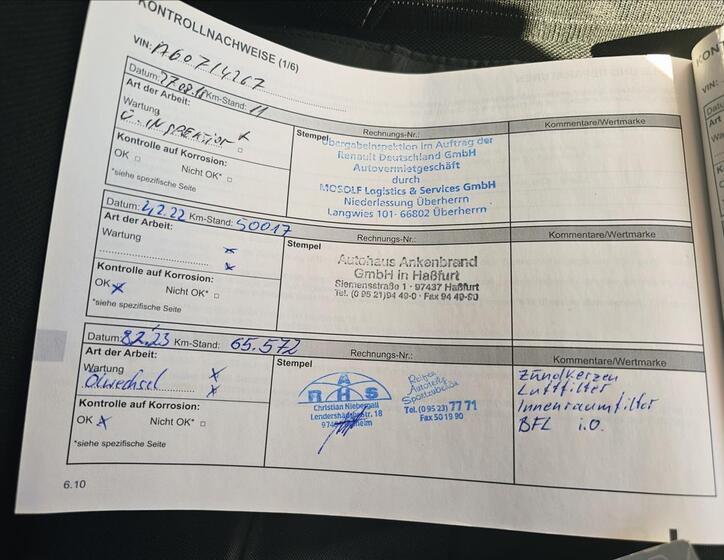 KONTROLLNACHWEISE (1/6)
VIN: A60714267
Datum: 27.08.18 Km-Stand: 11
Art der Arbeit:
Wartung
Ü. INSPEKTION x
Kontrolle auf Korrosion:
OK □ Nicht OK* □
*siehe spezifische Seite
Stempel
Rechnungs-Nr.:
Übergabeinspektion im Auftrag der
Renault Deutschland GmbH
Autovermietgeschäft
durch
MOSOLF Logistics & Services GmbH
Niederlassung Überherrn
Langwies 101· 66802 Überherrn
Kommentare/Wertmarke
Datum: 4.2.22 Km-Stand: 50017
Art der Arbeit:
Wartung x
x
Kontrolle auf Korrosion:
OK x Nicht OK* □
*siehe spezifische Seite
Stempel
Rechnungs-Nr.:
Autohaus Ankenbrand
GmbH in Haßfurt
Siemensstraße 1 · 97437 Haßfurt
Tel. (0 95 21) 94 49-0 · Fax 94 49-90
Kommentare/Wertmarke
Datum: 8.2.23 Km-Stand: 65.572
Art der Arbeit:
Wartung x
Ölwechsel x
Kontrolle auf Korrosion:
OK x Nicht OK* □
*siehe spezifische Seite
Stempel
Rechnungs-Nr.:
A
RHS
Christian Niebergall
Reifen
Autoteile
Sportzubehör
Tel. (0 95 23) 77 71
Fax 50 19 90
Kommentare/Wertmarke
Zündkerzen
Luftfilter
Innenraumfilter
BFL i.O.
6.10
VIN:
Art